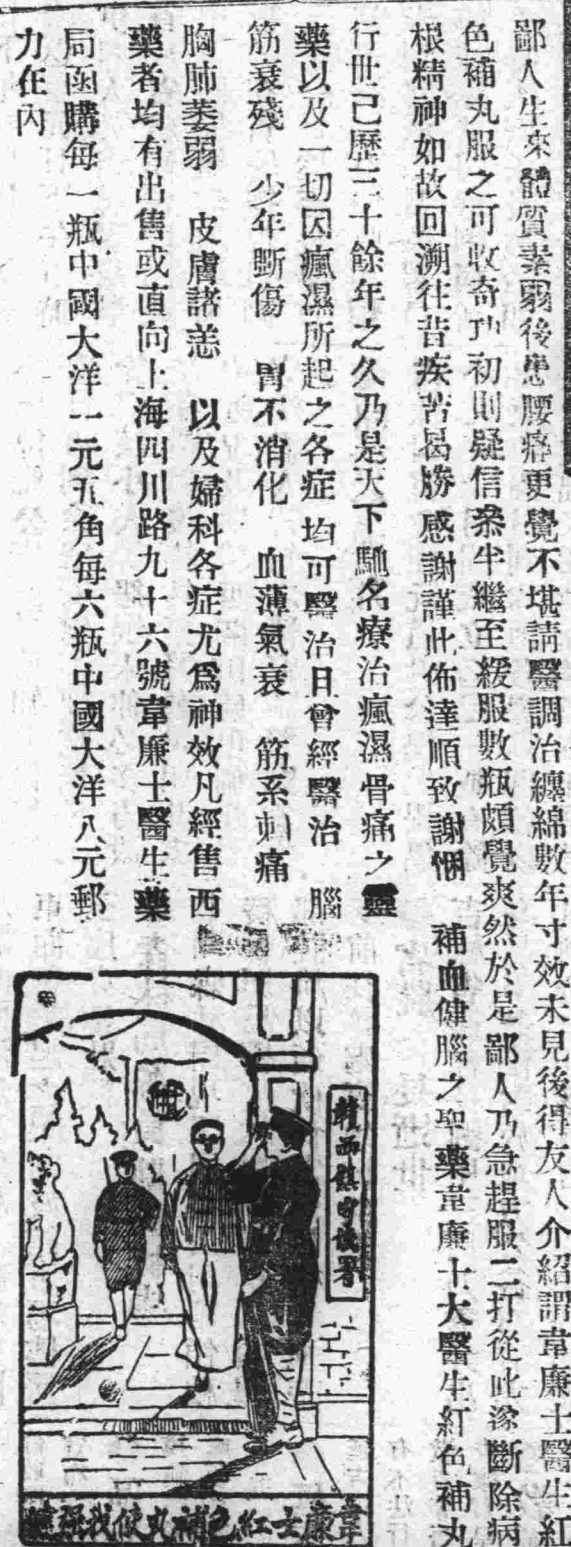 鄙人生來體質素弱後患腰痛更覺不堪請醫調治纏綿數年寸效未見後得友人介紹謂韋廉士醫生紅
色補丸服之可收奇功初則疑信叅半繼至緩服數瓶頗覺爽然於是鄙人乃急趕服二打從此漛斷除病
根精神如故回溯往昔疾苦曷勝感謝謹此佈達順致謝悃 補血健腦之聖藥韋廉士大醫生紅色補丸
行世已歷三十餘年之久乃是天下馳名療治瘋濕骨痛之靈
藥以及一切因瘋濕所起之各症均可醫治且曾經醫治 腦
筋衰殘 少年斲傷 胃不消化 血薄氣衰 筋系刺痛
胸肺萎弱 皮膚諸恙 以及婦科各症尤爲神效凡經售西
藥者均有出售或直向上海四川路九十六號韋廉士醫生藥
局函購每一瓶中國大洋一元五角每六瓶中國大洋八元郵
力在內
韋廉士紅色補丸使我强